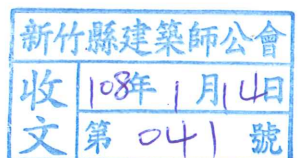 新竹縣建築師公會
收文
108年1月14日
第041號